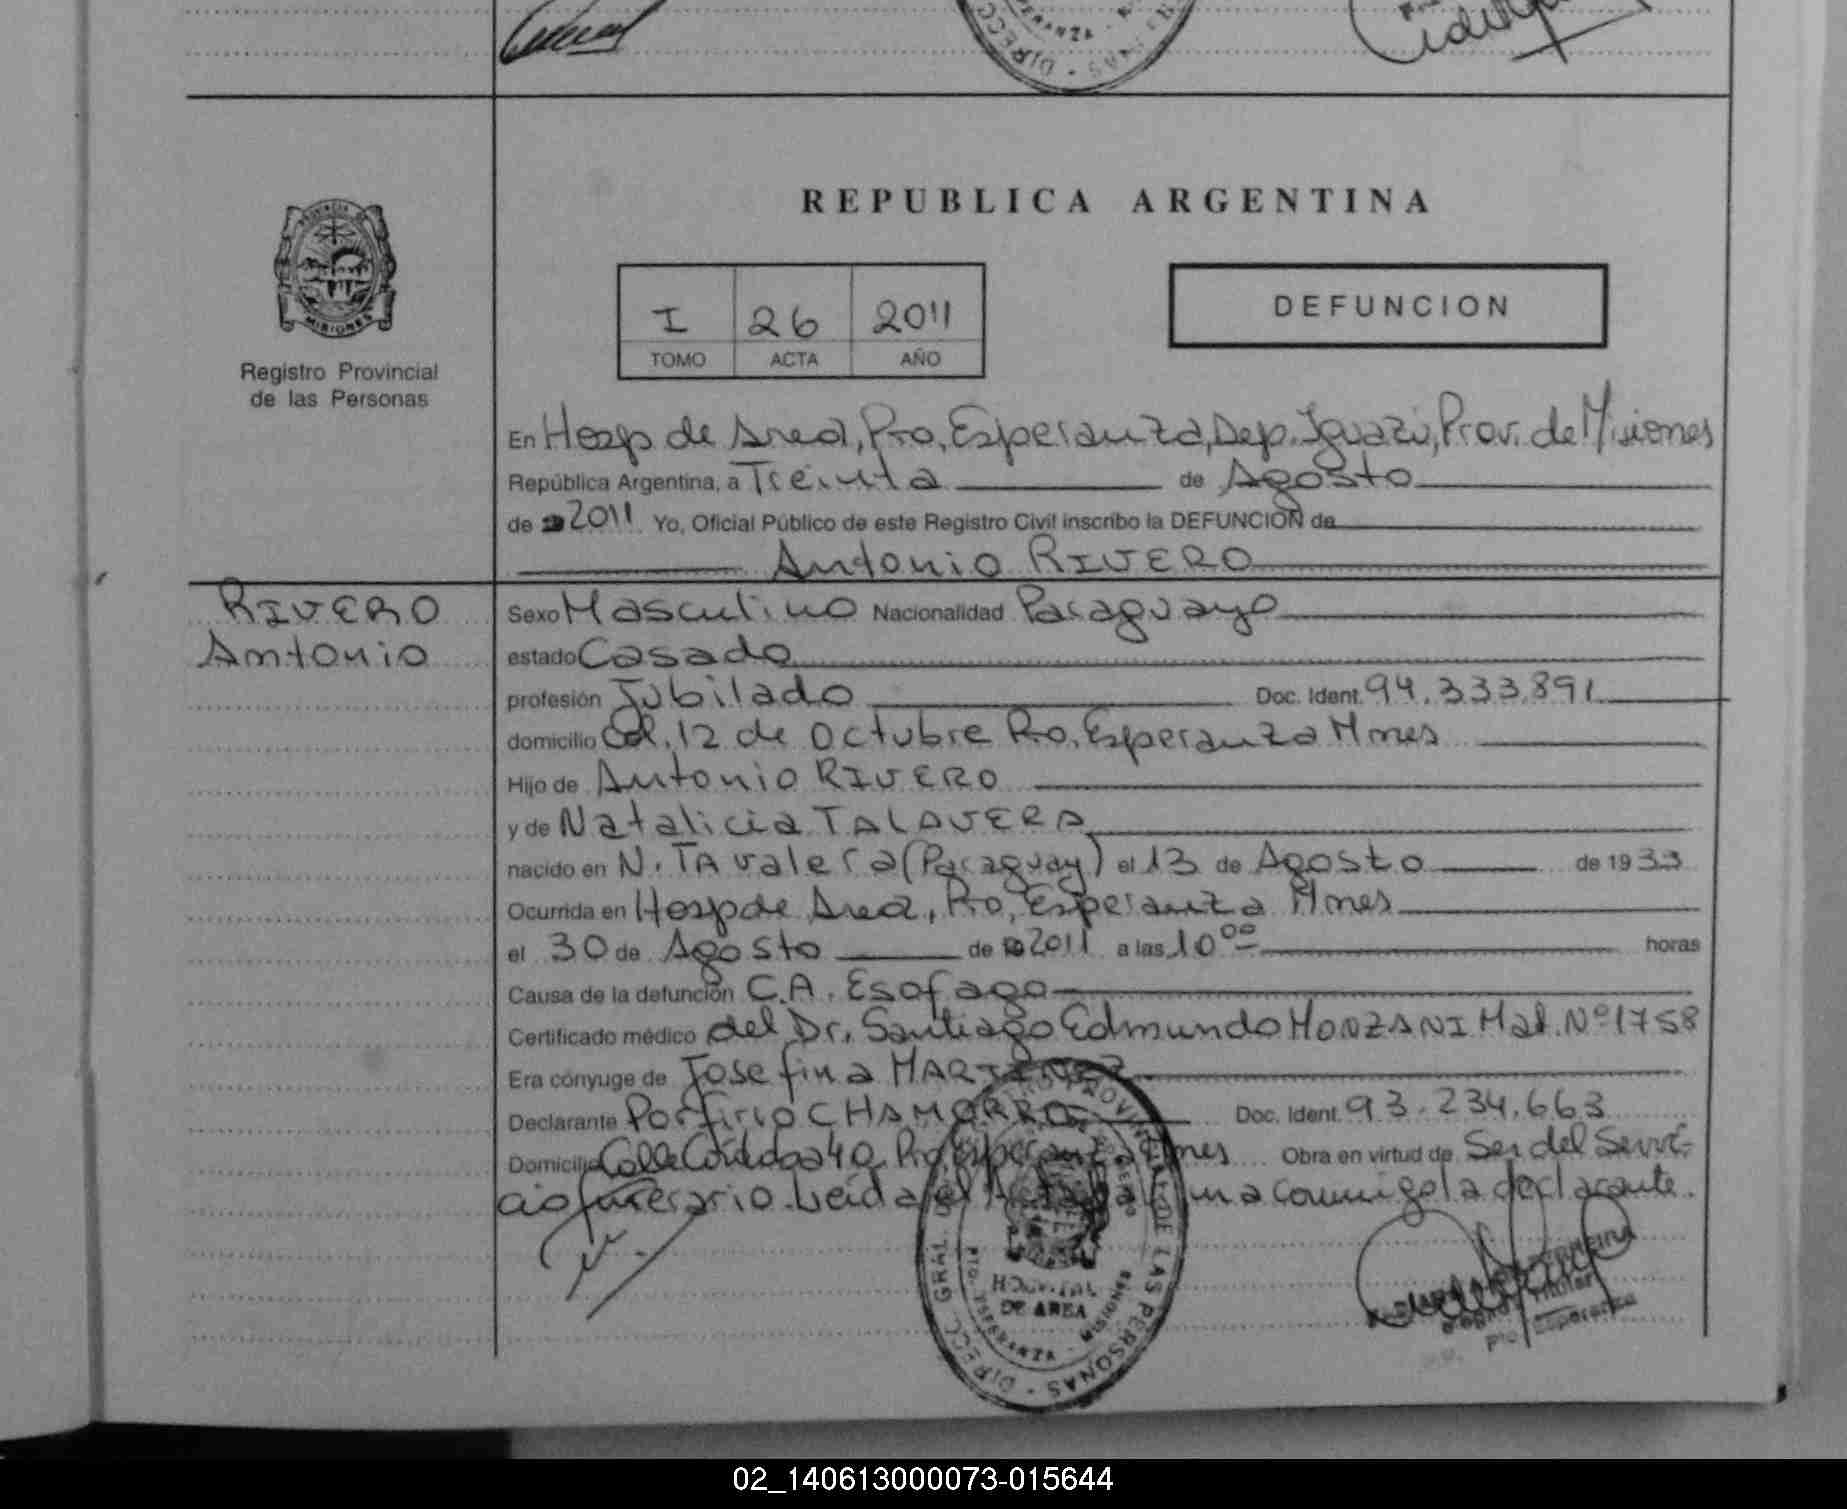 REPUBLICA ARGENTINA
PROVINCIA DE
MISIONES
Registro Provincial
de las Personas
I 26 2011
TOMO ACTA AÑO
DEFUNCION
En Hosp de Area, Pto, Esperanza, Dep. Iguazú, Prov. de Misiones
República Argentina, a Treinta de Agosto
de 2011 Yo, Oficial Público de este Registro Civil inscribo la DEFUNCION de
Antonio RIVERO
RIVERO
Antonio
Sexo Masculino Nacionalidad Paraguayo
estado Casado
profesión Jubilado Doc. Ident. 94.333.891
domicilio Col. 12 de Octubre Pto. Esperanza Mnes
Hijo de Antonio RIVERO
y de Natalicia TALAVERA
nacido en N. TAvalera (Paraguay) el 13 de Agosto de 1933
Ocurrida en Hosp de Area, Pto, Esperanza Mnes
el 30 de Agosto de 2011 a las 10 00 horas
Causa de la defunción C.A. Esofago
Certificado médico del Dr. Santiago Edmundo MONZANI Mat. Nº 1758
Era cónyuge de Josefina MARTINEZ
Declarante Porfirio CHAMORRO Doc. Ident. 93.234.663
Domicilio Calle Córdoba 40 Pto Esperanza Mnes Obra en virtud de Ser del Servi-
cio funerario. Leida el Acta la firma conmigo la declarante.
DIRECC. GRAL. DEL REGISTRO PROVINCIAL DE LAS PERSONAS
HOSPITAL
DE AREA
PTO. ESPERANZA - MISIONES
Titular
Pto. Esperanza
02_140613000073-015644